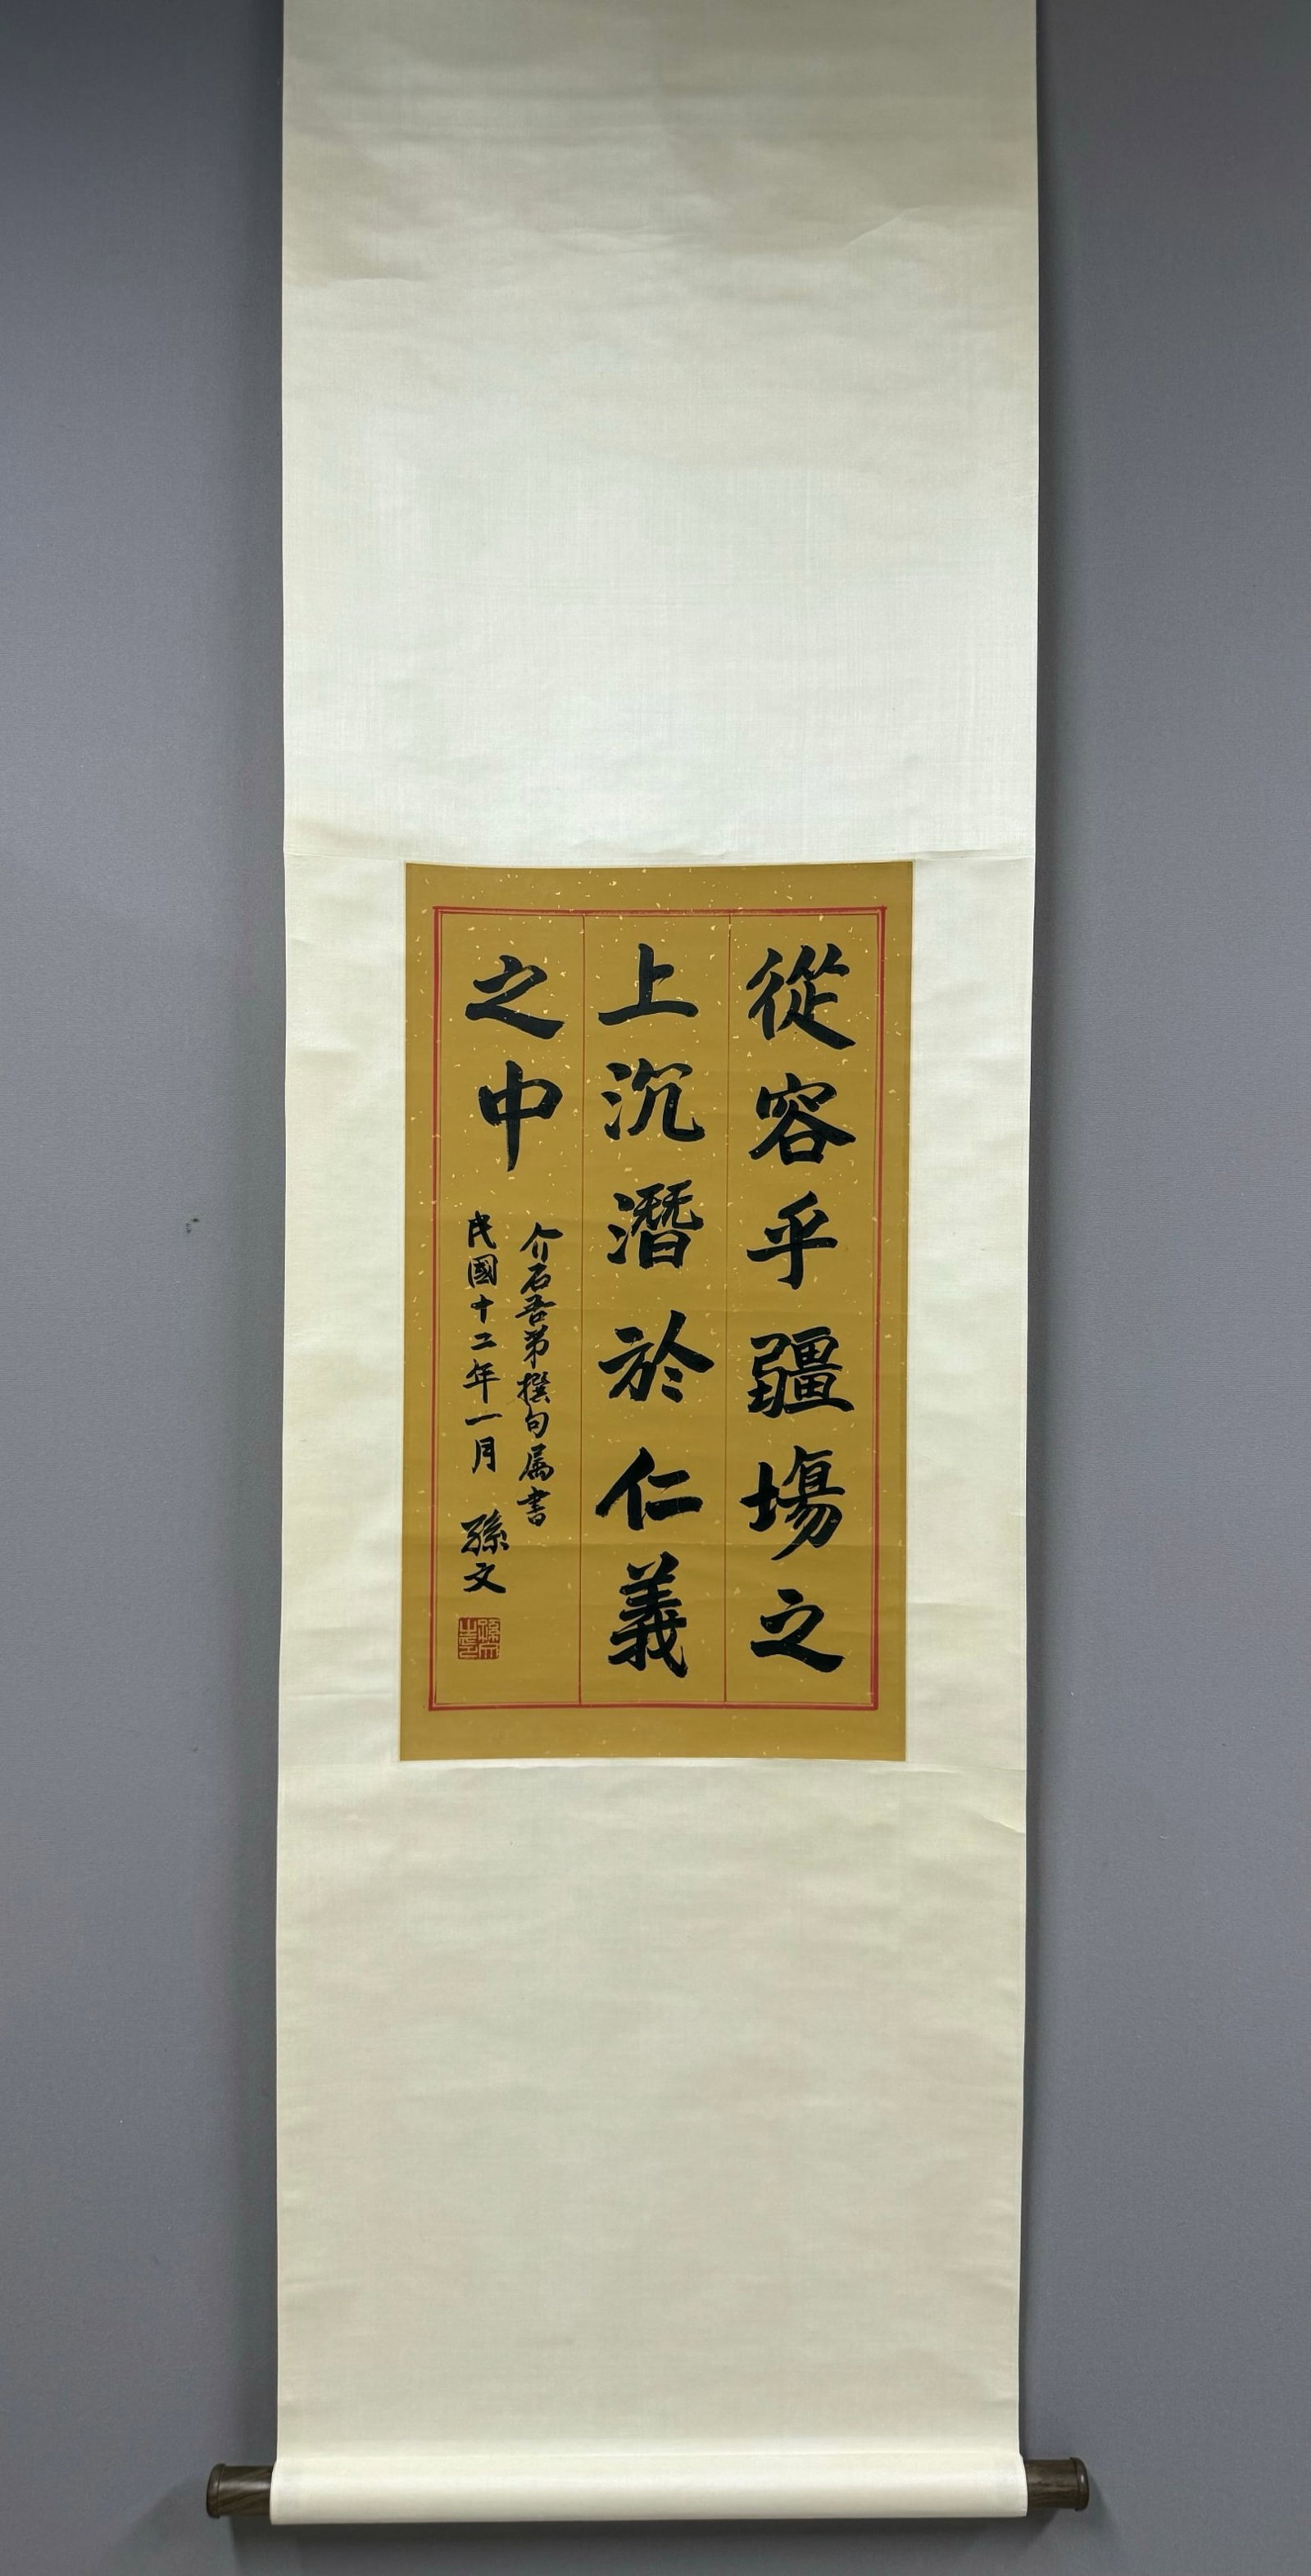 從容乎疆埸之
上沉潛於仁義
之中
介石吾弟撰句属書
民國十二年一月 孫文
孫文之印